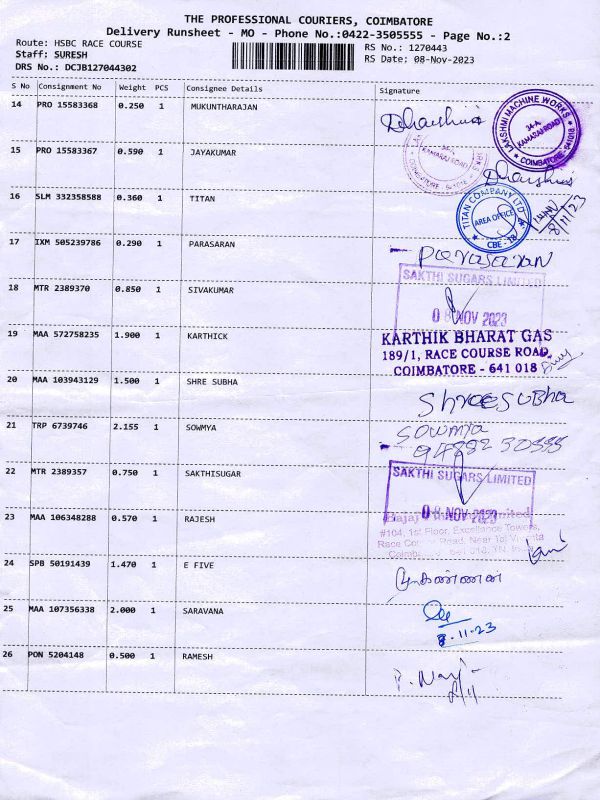 THE PROFESSIONAL COURIERS, COIMBATORE
Delivery Runsheet - MO - Phone No.:0422-3505555 - Page No.:2
Route: HSBC RACE COURSE
RS No.: 1270443
Staff: SURESH
RS Date: 08-Nov-2023
DRS No.: DCJB127044302
S No Consignment No Weight PCS Consignee Details Signature
14 PRO 15583368 0.250 1 MUKUNTHARAJAN
LAKSHMI MACHINE WORKS
34-A,
KAMARAJ ROAD
COIMBATORE - 641018
15 PRO 15583367 0.590 1 JAYAKUMAR
KAMARAJ ROAD
COIMBATORE
16 SLM 332358588 0.360 1 TITAN
TITAN COMPANY LTD
AREA OFFICE
CBE - 18
8/11/23
17 IXM 505239786 0.290 1 PARASARAN
Parasaran
18 MTR 2389370 0.850 1 SIVAKUMAR
SAKTHI SUGARS LIMITED
08 NOV 2023
19 MAA 572758235 1.900 1 KARTHICK
KARTHIK BHARAT GAS
189/1, RACE COURSE ROAD,
COIMBATORE - 641 018
20 MAA 103943129 1.500 1 SHRE SUBHA
Shree Subha
21 TRP 6739746 2.155 1 SOWMYA
Sowmya
22 MTR 2389357 0.750 1 SAKTHISUGAR
SAKTHI SUGARS LIMITED
08 NOV 2023
23 MAA 106348288 0.570 1 RAJESH
Bajaj
#104, 1st Floor, Excellance Towers,
Race Road, Near
24 SPB 50191439 1.470 1 E FIVE
25 MAA 107356338 2.000 1 SARAVANA
8.11.23
26 PON 5204148 0.500 1 RAMESH
8/11